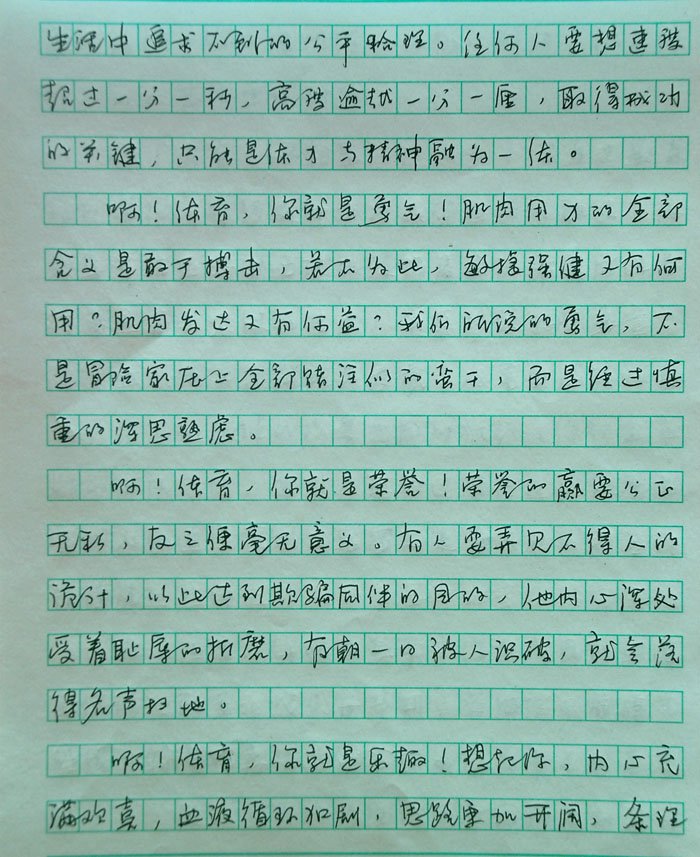 生活中追求不到的公平合理。任何人要想速度
超过一分一秒，高度逾越一分一厘，取得成功
的关键，只能是体力与精神融为一体。
啊！体育，你就是勇气！肌肉用力的全部
含义是敢于搏击，若不为此，敏捷强健又有何
用？肌肉发达又有何益？我们所说的勇气，不
是冒险家压上全部赌注似的蛮干，而是经过慎
重的深思熟虑。
啊！体育，你就是荣誉！荣誉的赢要公正
无私，反之便毫无意义。有人要弄见不得人的
诡计，以此达到欺骗同伴的目的，他内心深处
受着耻辱的折磨，有朝一日被人识破，就会落
得名声扫地。
啊！体育，你就是乐趣！想起你，内心充
满欢喜，血液循环加剧，思路更加开阔，条理